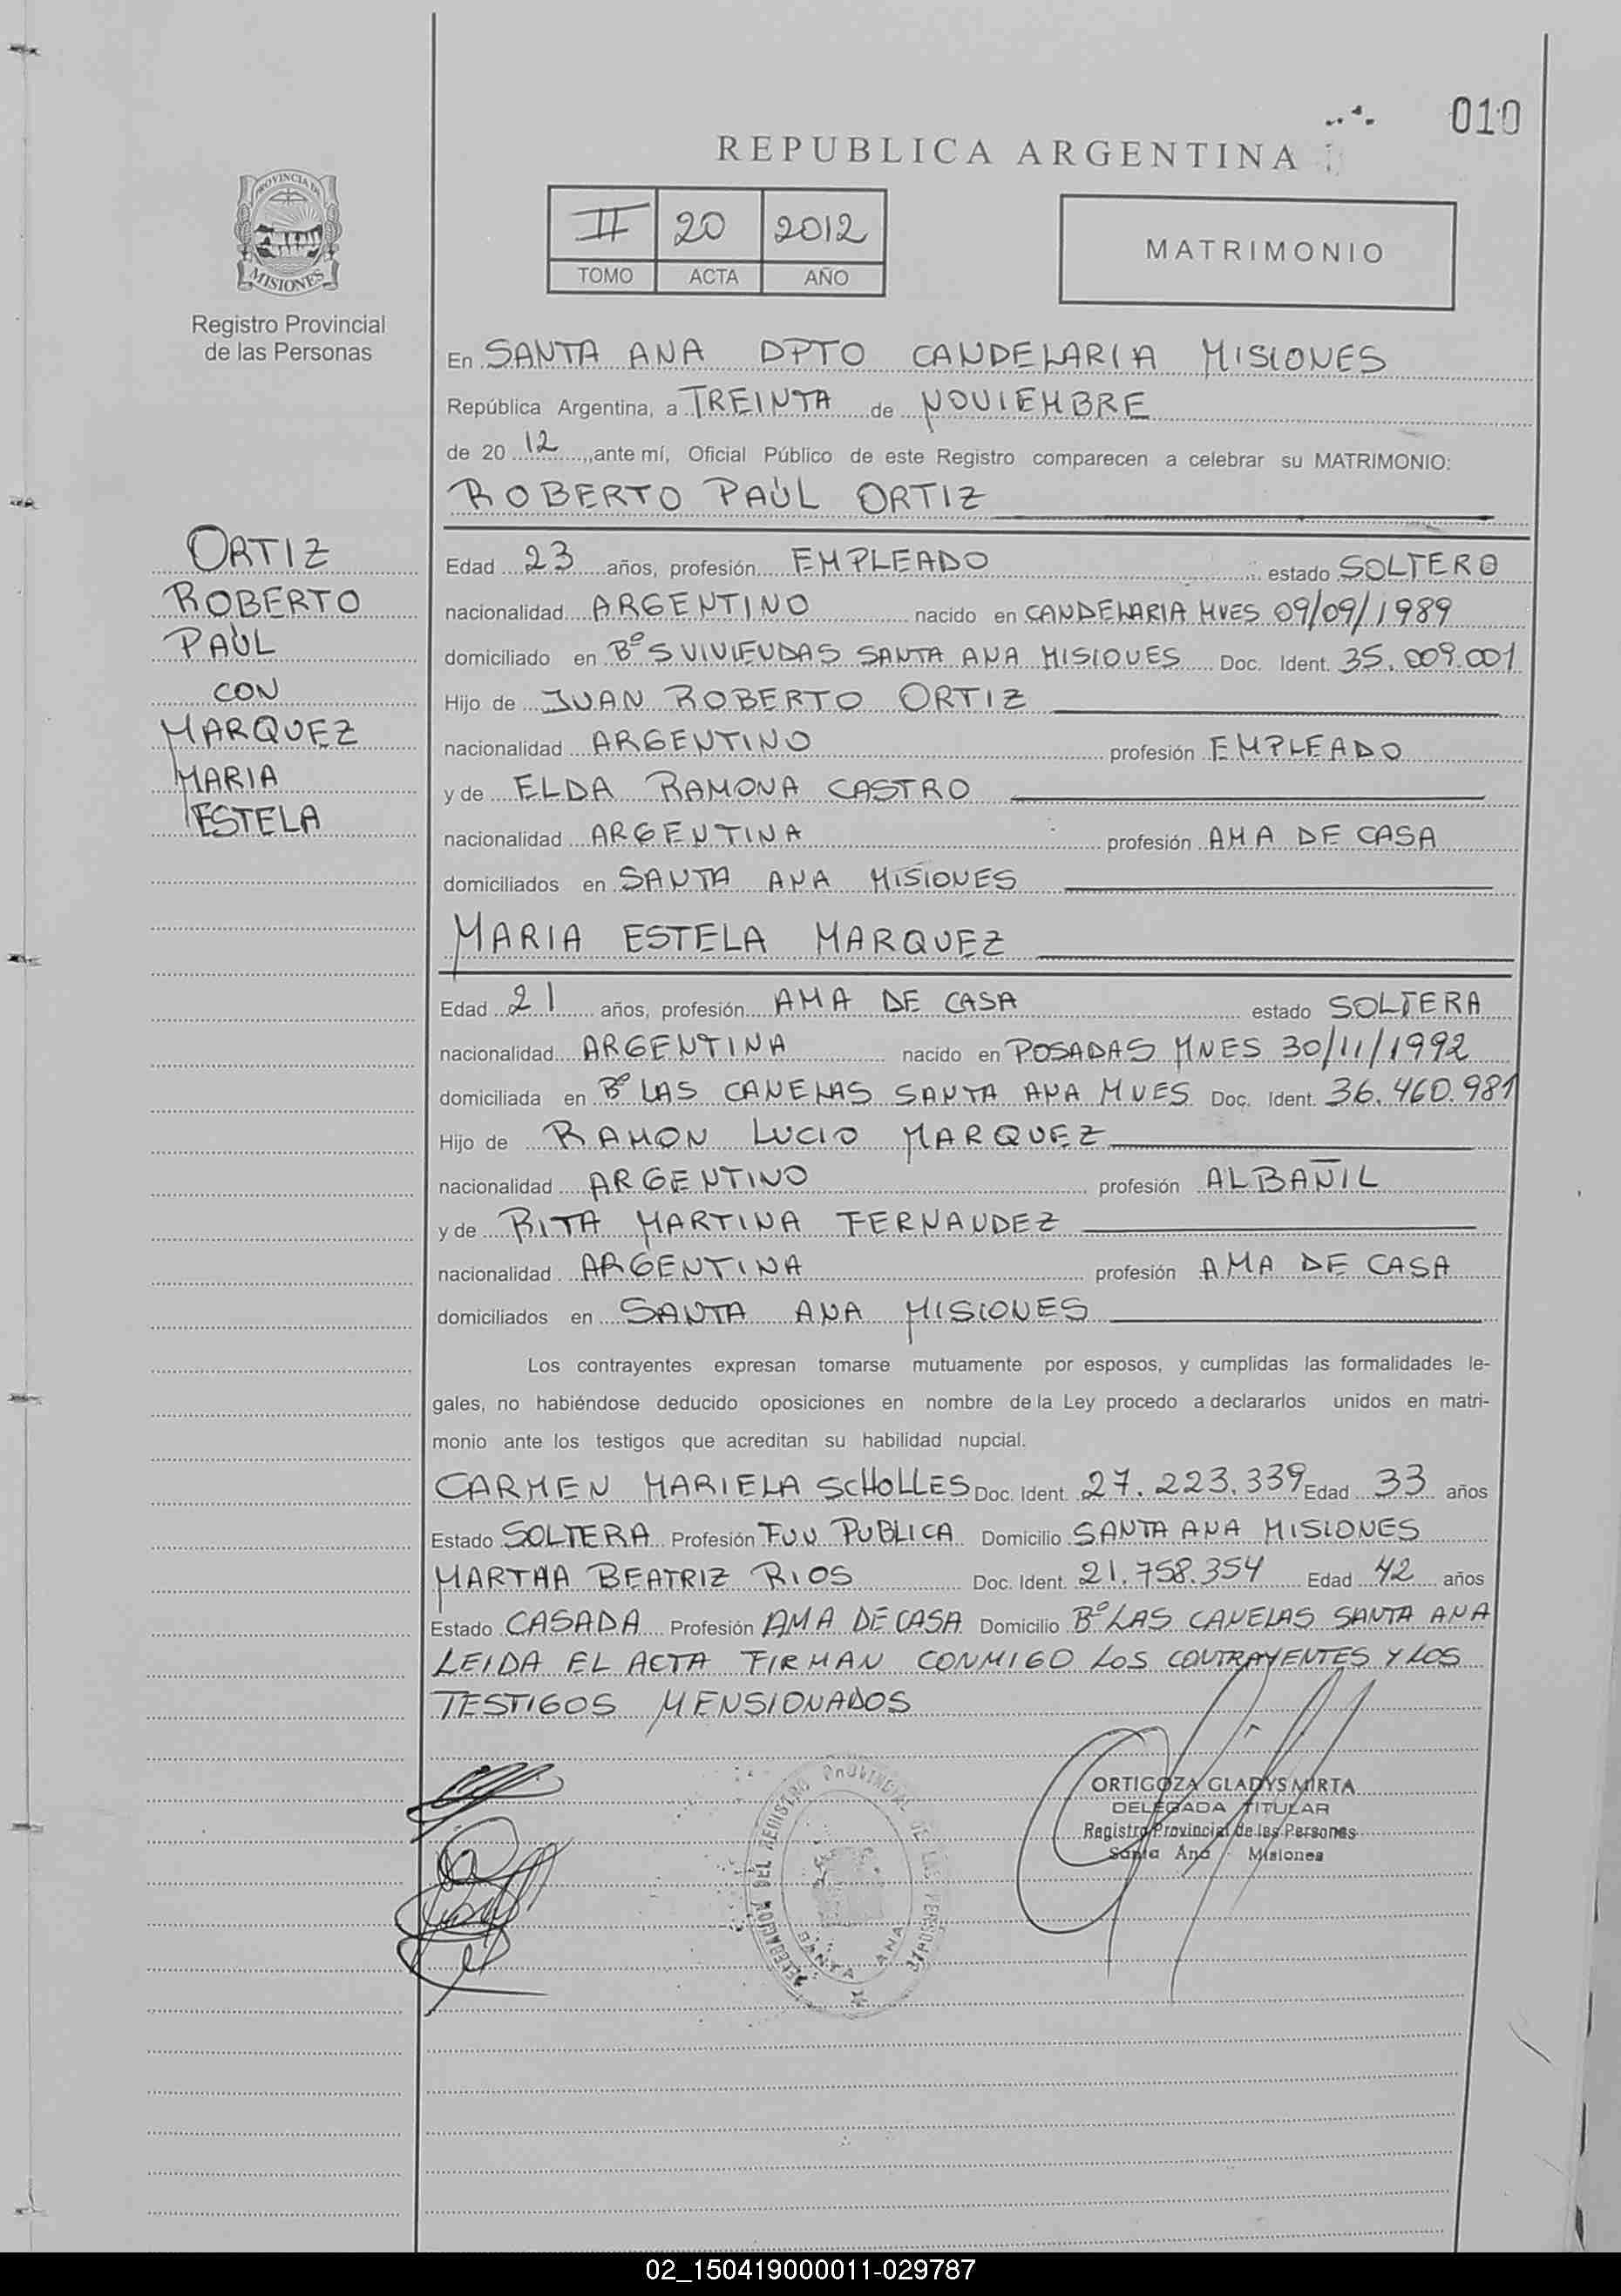 010
REPUBLICA ARGENTINA
PROVINCIA DE
MISIONES
Registro Provincial
de las Personas
II 20 2012
TOMO ACTA AÑO
MATRIMONIO
En SANTA ANA DPTO CANDELARIA MISIONES
República Argentina, a TREINTA de NOVIEMBRE
de 20 12, ante mí, Oficial Público de este Registro comparecen a celebrar su MATRIMONIO:
ROBERTO PAÚL ORTIZ
ORTIZ
ROBERTO
PAÚL
CON
MARQUEZ
MARIA
ESTELA
Edad 23 años, profesión EMPLEADO estado SOLTERO
nacionalidad ARGENTINO nacido en CANDELARIA MNES 09/09/1989
domiciliado en Bº S VIVIENDAS SANTA ANA MISIONES Doc. Ident. 35.009.001
Hijo de JUAN ROBERTO ORTIZ
nacionalidad ARGENTINO profesión EMPLEADO
y de ELDA RAMONA CASTRO
nacionalidad ARGENTINA profesión AMA DE CASA
domiciliados en SANTA ANA MISIONES
MARIA ESTELA MARQUEZ
Edad 21 años, profesión AMA DE CASA estado SOLTERA
nacionalidad ARGENTINA nacido en POSADAS MNES 30/11/1992
domiciliada en Bº LAS CANELAS SANTA ANA MNES Doc. Ident. 36.460.981
Hijo de RAMON LUCIO MARQUEZ
nacionalidad ARGENTINO profesión ALBAÑIL
y de RITA MARTINA FERNANDEZ
nacionalidad ARGENTINA profesión AMA DE CASA
domiciliados en SANTA ANA MISIONES
Los contrayentes expresan tomarse mutuamente por esposos, y cumplidas las formalidades le-
gales, no habiéndose deducido oposiciones en nombre de la Ley procedo a declararlos unidos en matri-
monio ante los testigos que acreditan su habilidad nupcial.
CARMEN MARIELA SCHOLLES Doc. Ident. 27.223.339 Edad 33 años
Estado SOLTERA Profesión FUN PUBLICA Domicilio SANTA ANA MISIONES
MARTHA BEATRIZ RIOS Doc. Ident. 21.758.354 Edad 42 años
Estado CASADA Profesión AMA DE CASA Domicilio Bº LAS CANELAS SANTA ANA
LEIDA EL ACTA FIRMAN CONMIGO LOS CONTRAYENTES Y LOS
TESTIGOS MENSIONADOS
DELEGACION DEL REGISTRO PROVINCIAL DE LAS PERSONAS
SANTA ANA
ORTIGOZA GLADYS MIRTA
DELEGADA TITULAR
Registro Provincial de las Personas
Santa Ana - Misiones
02_150419000011-029787